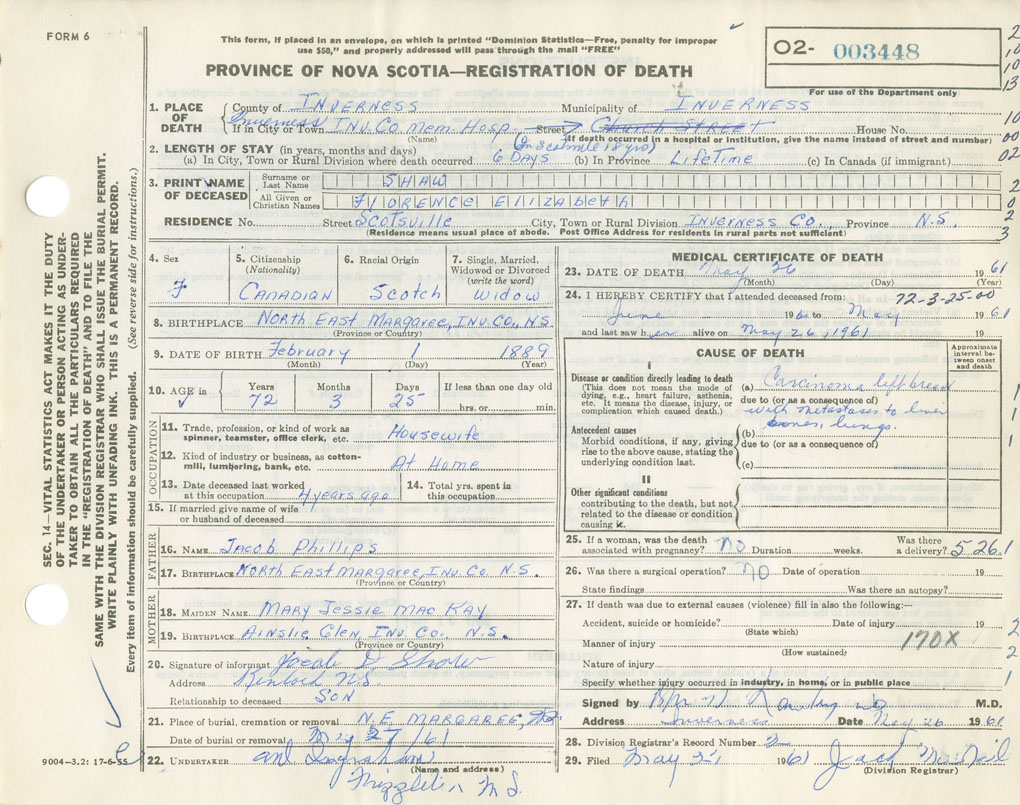 FORM 6
This form, if placed in an envelope, on which is printed "Dominion Statistics—Free, penalty for improper
use $50," and properly addressed will pass through the mail "FREE"
PROVINCE OF NOVA SCOTIA—REGISTRATION OF DEATH
02- 003448
For use of the Department only
1. PLACE OF DEATH
County of INVERNESS Municipality of INVERNESS
Inverness
If in City or Town INV. CO. Mem. Hosp. Street Church Street House No.
(Name) (If death occurred in a hospital or institution, give the name instead of street and number)
2. LENGTH OF STAY (in years, months and days) (In Scotsville 18 yrs)
(a) In City, Town or Rural Division where death occurred 6 Days (b) In Province LifeTime (c) In Canada (if immigrant)
3. PRINT NAME OF DECEASED
Surname or Last Name SHAW
All Given or Christian Names Florence Elizabeth
RESIDENCE No. Street Scotsville City, Town or Rural Division Inverness Co. Province N.S.
(Residence means usual place of abode. Post Office Address for residents in rural parts not sufficient)
4. Sex F
5. Citizenship (Nationality) Canadian
6. Racial Origin Scotch
7. Single, Married, Widowed or Divorced (write the word) Widow
8. BIRTHPLACE North East Margaree, Inv. Co., N.S.
(Province or Country)
9. DATE OF BIRTH February 1 1889
(Month) (Day) (Year)
10. AGE in Years 72 Months 3 Days 25 If less than one day old hrs. or min.
OCCUPATION
11. Trade, profession, or kind of work as spinner, teamster, office clerk, etc. Housewife
12. Kind of industry or business, as cotton-mill, lumbering, bank, etc. At Home
13. Date deceased last worked at this occupation 4 years ago
14. Total yrs. spent in this occupation
15. If married give name of wife or husband of deceased
FATHER
16. NAME Jacob Phillips
17. BIRTHPLACE North East Margaree, Inv. Co. N.S.
(Province or Country)
MOTHER
18. MAIDEN NAME Mary Jessie MacKay
19. BIRTHPLACE Ainslie Glen, Inv. Co. N.S.
(Province or Country)
20. Signature of informant Jacob D. Shaw
Address Kinloch N.S.
Relationship to deceased Son
21. Place of burial, cremation or removal N.E. MARGAREE,
Date of burial or removal May 27/61
22. UNDERTAKER
(Name and address)
9004—3.2: 17-6-55
SEC. 14—VITAL STATISTICS ACT MAKES IT THE DUTY
OF THE UNDERTAKER OR PERSON ACTING AS UNDER-
TAKER TO OBTAIN ALL THE PARTICULARS REQUIRED
IN THE "REGISTRATION OF DEATH" AND TO FILE THE
SAME WITH THE DIVISION REGISTRAR WHO SHALL ISSUE THE BURIAL PERMIT.
WRITE PLAINLY WITH UNFADING INK. THIS IS A PERMANENT RECORD.
Every item of information should be carefully supplied. (See reverse side for instructions.)
MEDICAL CERTIFICATE OF DEATH
23. DATE OF DEATH May 26 1961
(Month) (Day) (Year)
24. I HEREBY CERTIFY that I attended deceased from: 72-3-25-00
June 1960 to May 1961
and last saw her alive on May 26, 1961 19
CAUSE OF DEATH
Approximate interval between onset and death
I
Disease or condition directly leading to death
(This does not mean the mode of dying, e.g., heart failure, asthenia, etc. It means the disease, injury, or complication which caused death.)
(a) Carcinoma left breast
due to (or as a consequence of)
with metastases to liver
bones, lungs.
Antecedent causes
Morbid conditions, if any, giving rise to the above cause, stating the underlying condition last.
(b)
due to (or as a consequence of)
(c)
II
Other significant conditions
contributing to the death, but not related to the disease or condition causing it.
25. If a woman, was the death associated with pregnancy? No Duration weeks. Was there a delivery? 5.26.1
26. Was there a surgical operation? No Date of operation 19
State findings Was there an autopsy?
27. If death was due to external causes (violence) fill in also the following:—
Accident, suicide or homicide? Date of injury 19
(State which)
Manner of injury 170X
(How sustained)
Nature of injury
Specify whether injury occurred in industry, in home, or in public place
Signed by M.D.
Address Inverness Date May 26 1961
28. Division Registrar's Record Number 2
29. Filed May 1961 Jack MacNeil
(Division Registrar)